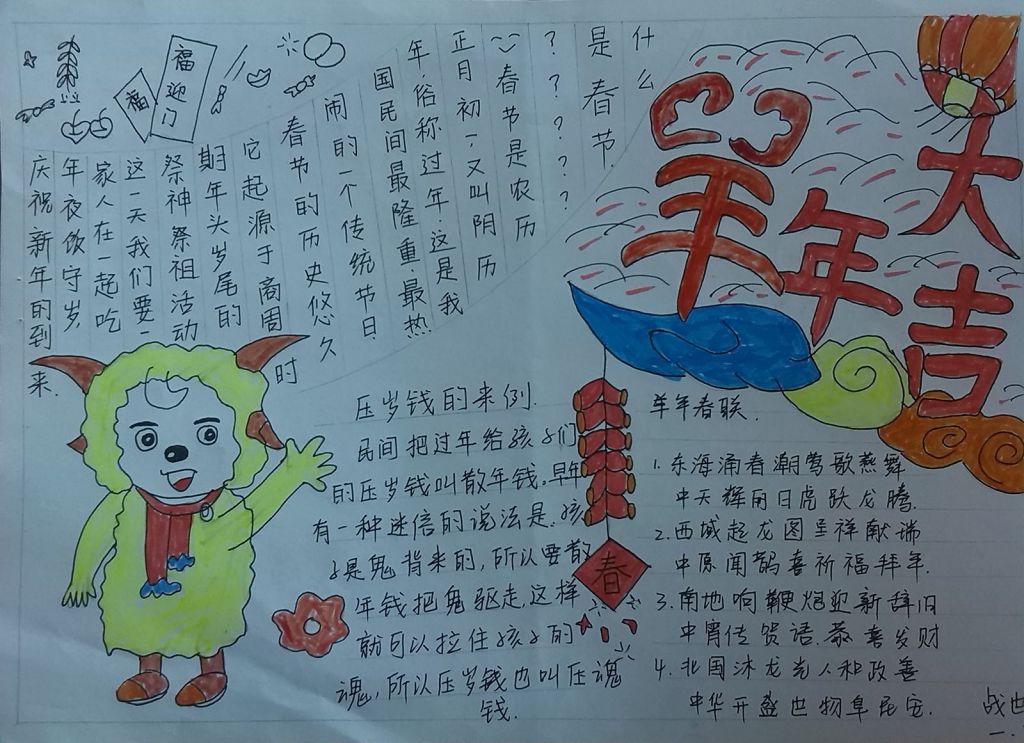 羊年大吉
福迎门
福
什么
是春节
？？？？？？
春节是农历
正月初一，又叫阴历
年，俗称过年。这是我
国民间最隆重，最热
闹的一个传统节日
春节的历史悠久
它起源于商周时
期年头岁尾的
祭神祭祖活动
这一天我们要一
家人在一起吃
年夜饭守岁，
庆祝新年的到来.
压岁钱的来例.
民间把过年给孩子们
的压岁钱叫散年钱。早年
有一种迷信的说法是，孩
子是鬼背来的，所以要散
年钱把鬼驱走，这样
就可以拉住孩子的
魂，所以压岁钱也叫压魂
钱.
春
羊年春联.
1. 东海涌春潮莺歌燕舞
中天辉丽日虎跃龙腾.
2. 西域起龙图呈祥献瑞
中原闻鹊喜祈福拜年.
3. 南地响鞭炮迎新辞旧
中宵传贺语.恭喜发财
4. 北国沐龙光人和政善
中华开盛世物阜民安.